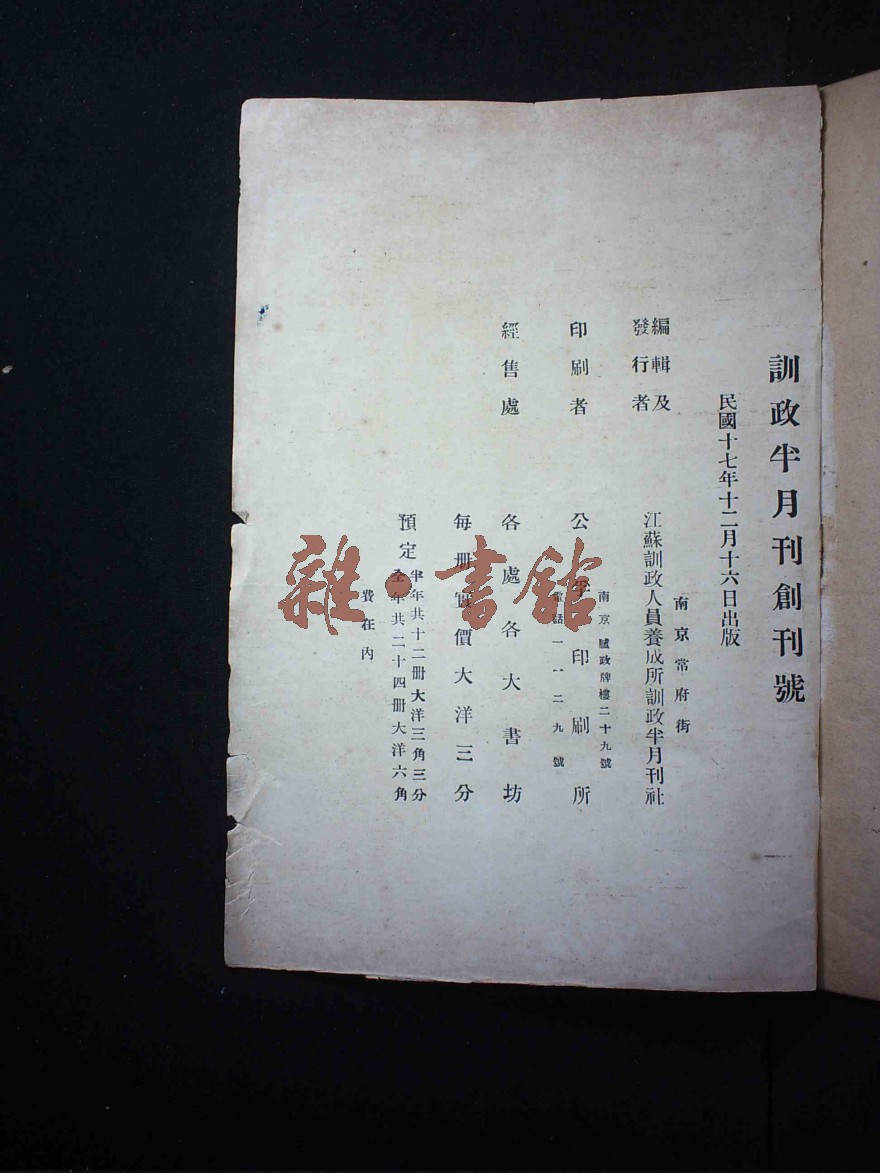 訓政半月刊創刊號
民國十七年十二月十六日出版
南京常府街
編輯及
發行者
江蘇訓政人員養成所訓政半月刊社
南京盧政牌樓二十九號
印刷者
公孚印刷所
電話一一二九號
經售處
各處各大書坊
每册實價大洋三分
預定
半年共十二册大洋三角三分
全年共二十四册大洋六角
費在內
雜·書館